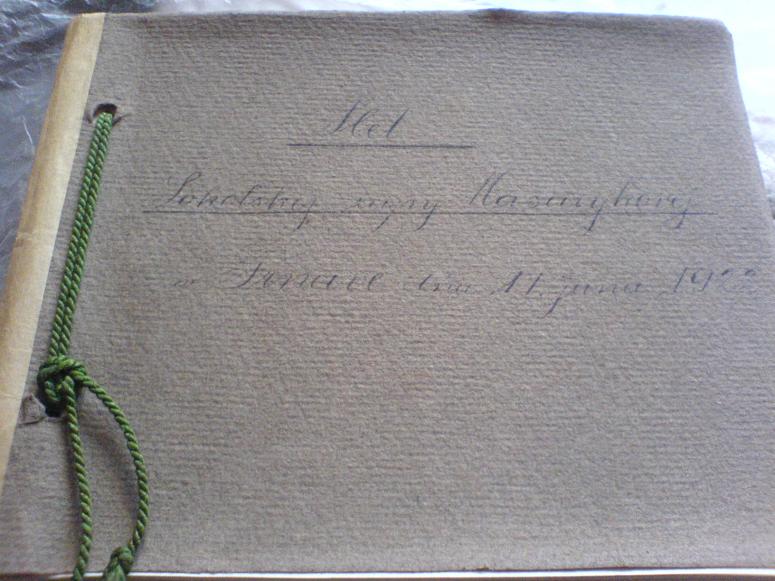 Slet
Sokolskej župy Masarykovej
v Trnave dňa 11. juna 19